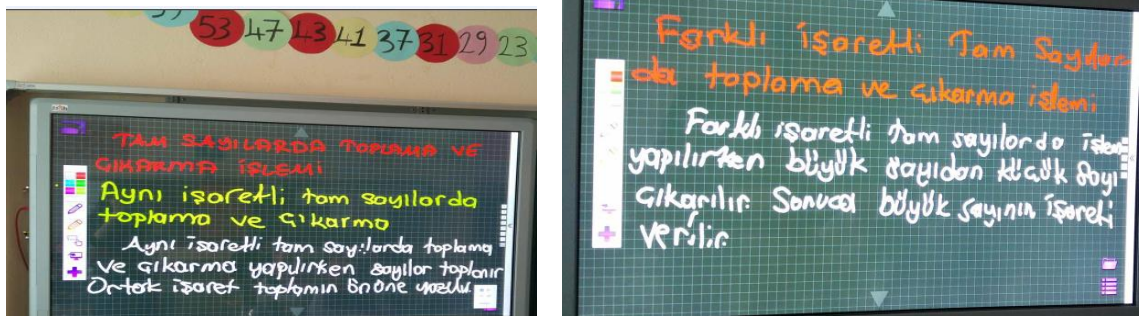 53 47 43 41 37 31 29 23
TAM SAYILARDA TOPLAMA VE
ÇIKARMA İŞLEMİ
Aynı işaretli tam sayılarda
toplama ve çıkarma
Aynı işaretli tam sayılarda toplama
ve çıkarma yapılırken sayılar toplanır
Ortak işaret toplamın önüne yazılır
Farklı işaretli Tam Sayılar
da toplama ve çıkarma işlemi
Farklı işaretli tam sayılarda işlem
yapılırken büyük sayıdan küçük sayı
çıkarılır. Sonuca büyük sayının işareti
verilir.